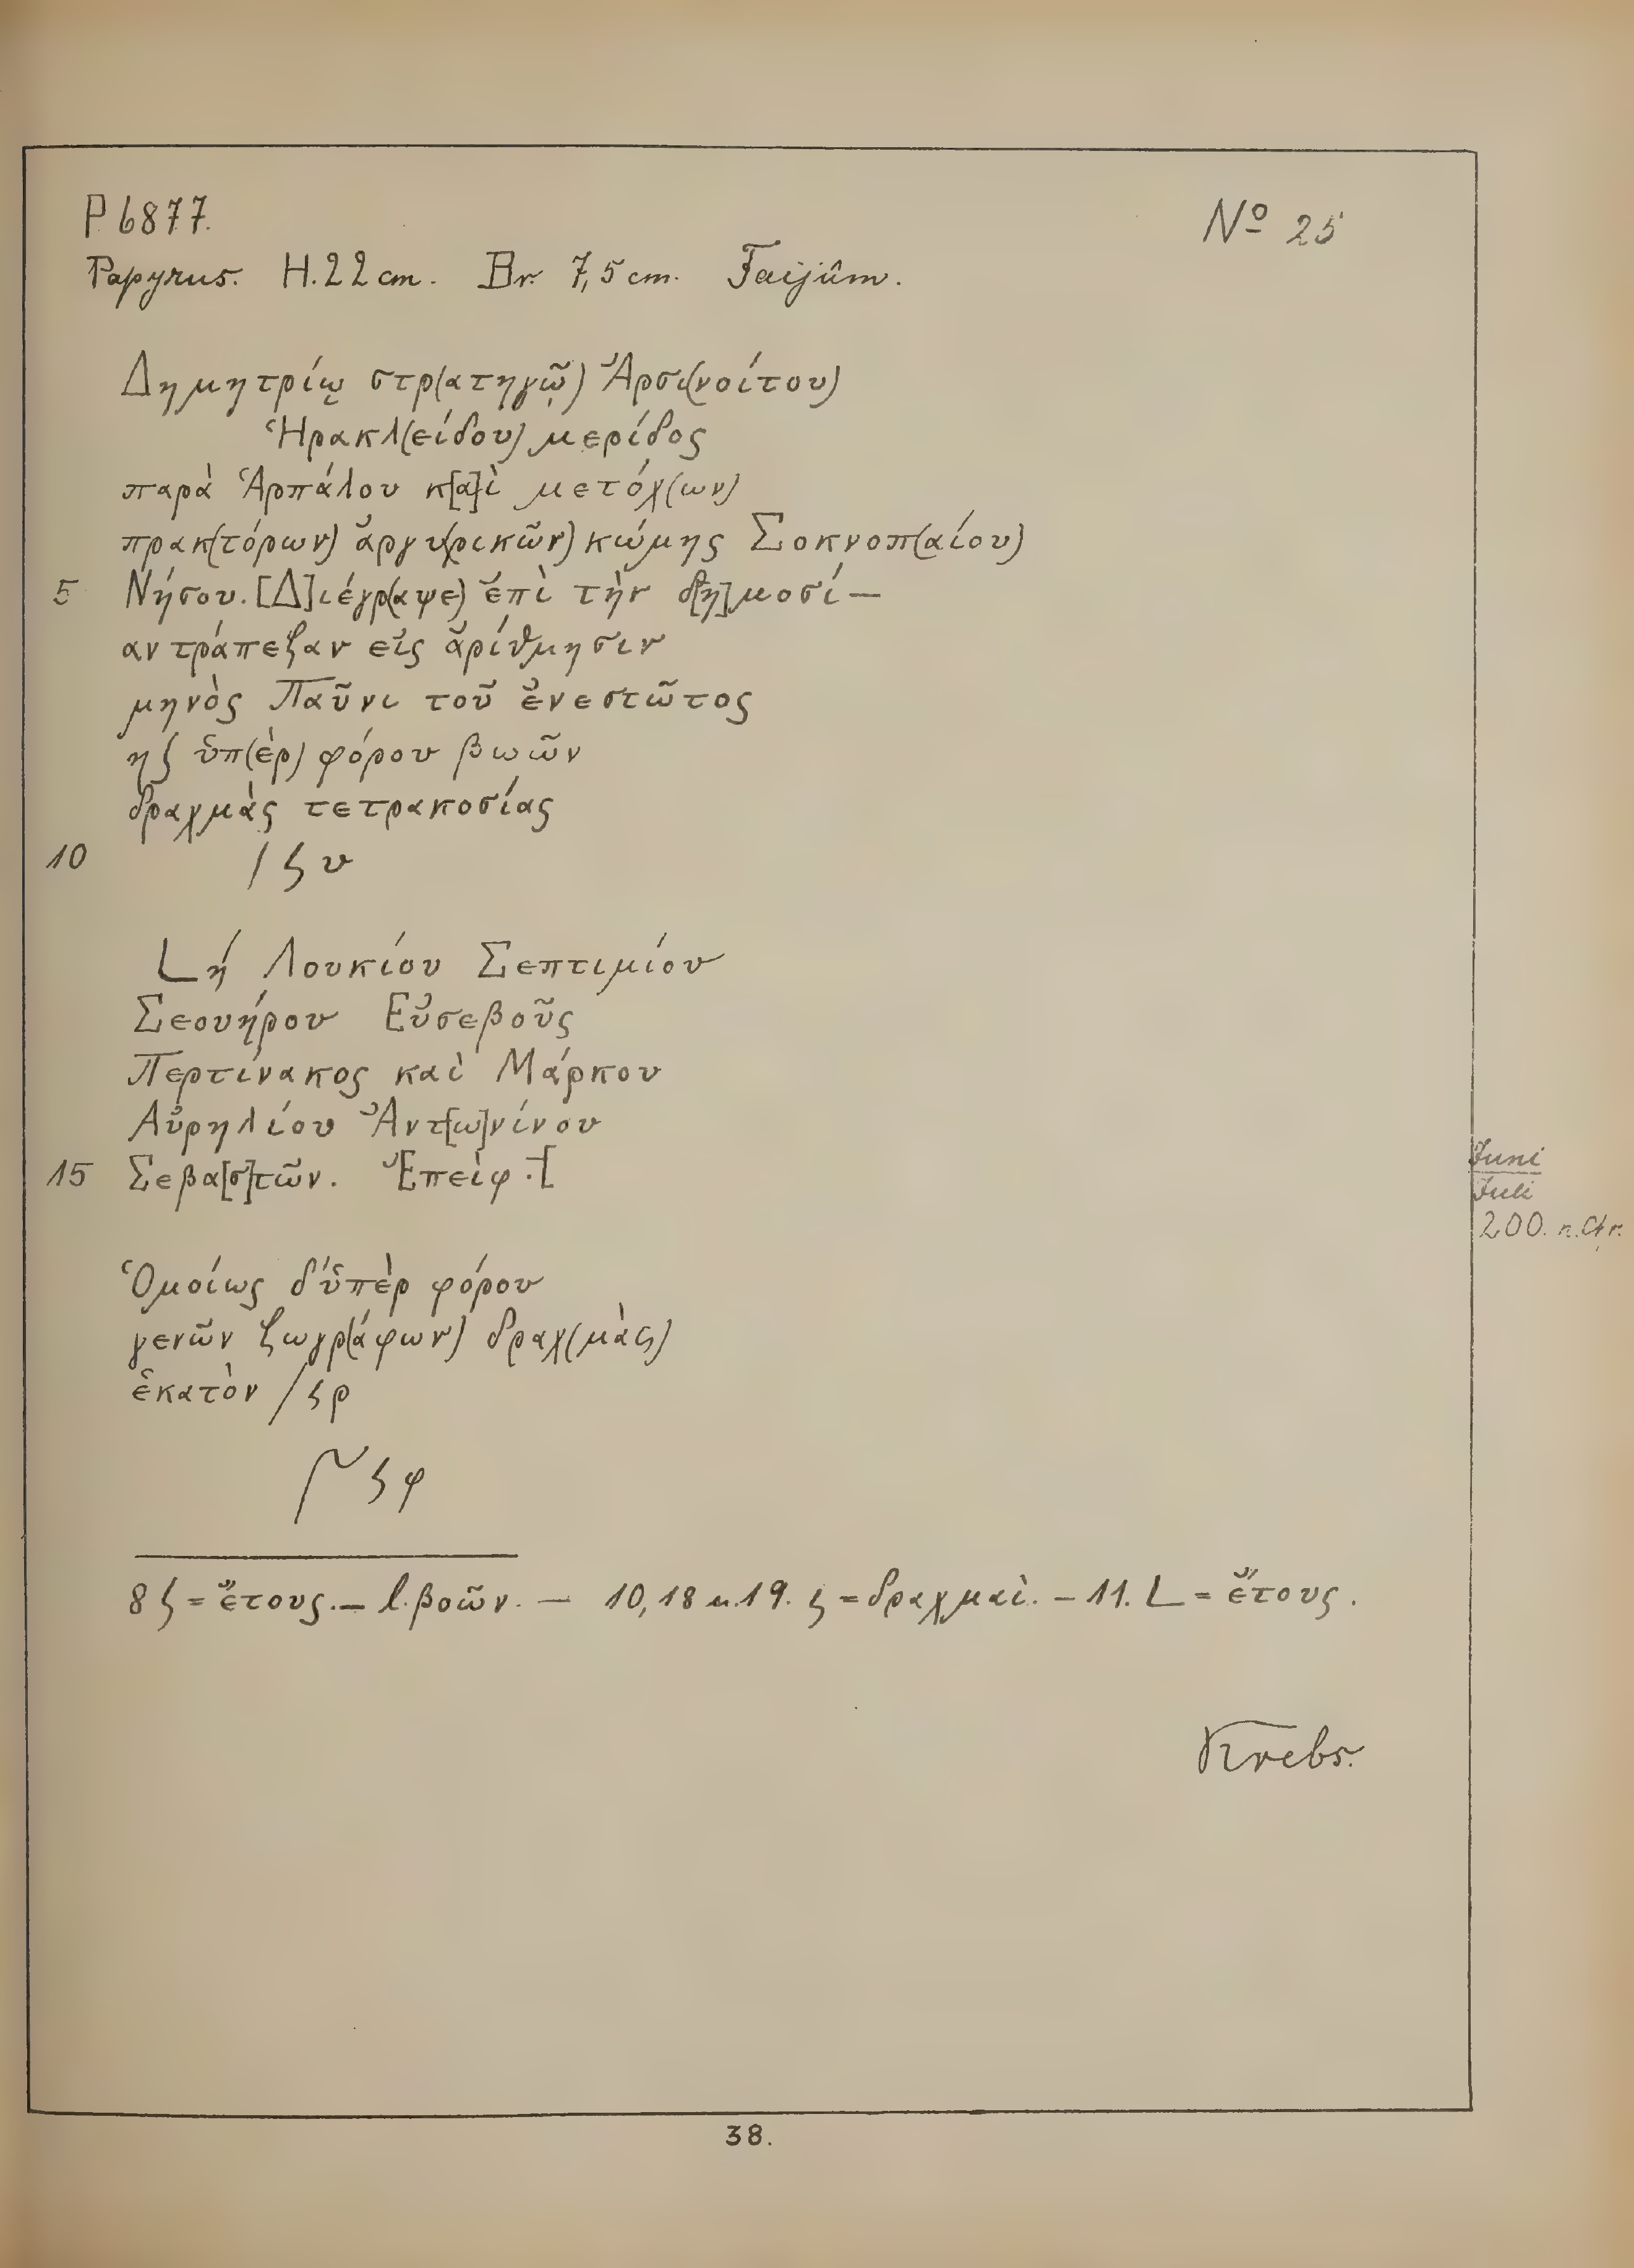 P 6877.
Nº 25
Papyrus. H. 22 cm. Br. 7,5 cm. Faijûm.
Δημητρίῳ στρ(ατηγῷ) Ἀρσι(νοίτου)
Ἡρακλ(είδου) μερίδος
παρὰ Ἁρπάλου κ[α]ὶ μετόχ(ων)
πρακ(τόρων) ἀργυ(ρικῶν) κώμης Σοκνοπ(αίου)
5 Νήσου. [Δ]ιέγρ(αψε) ἐπὶ τὴν δ[η]μοσί—
αν τράπεζαν εἰς ἀρίθμησιν
μηνὸς Παῦνι τοῦ ἐνεστῶτος
ηϛ ὑπ(ὲρ) φόρου βωῶν
δραχμὰς τετρακοσίας
10 / ϛ υ
L ή Λουκίου Σεπτιμίου
Σεουήρου Εὐσεβοῦς
Περτίνακος καὶ Μάρκου
Αὐρηλίου Ἀντ[ω]νίνου
15 Σεβα[σ]τῶν. Ἐπεὶφ ·[
Ὁμοίως δ' ὑπὲρ φόρου
γενῶν ζωγρ(άφων) δραχ(μὰς)
ἑκατὸν / ϛ ρ
ϛ φ
8 ϛ = ἔτους. — l. βοῶν. — 10, 18 u. 19. ϛ = δραχμαὶ. — 11. L = ἔτους.
Juni
Juli
200. n. Chr.
Krebs.
38.